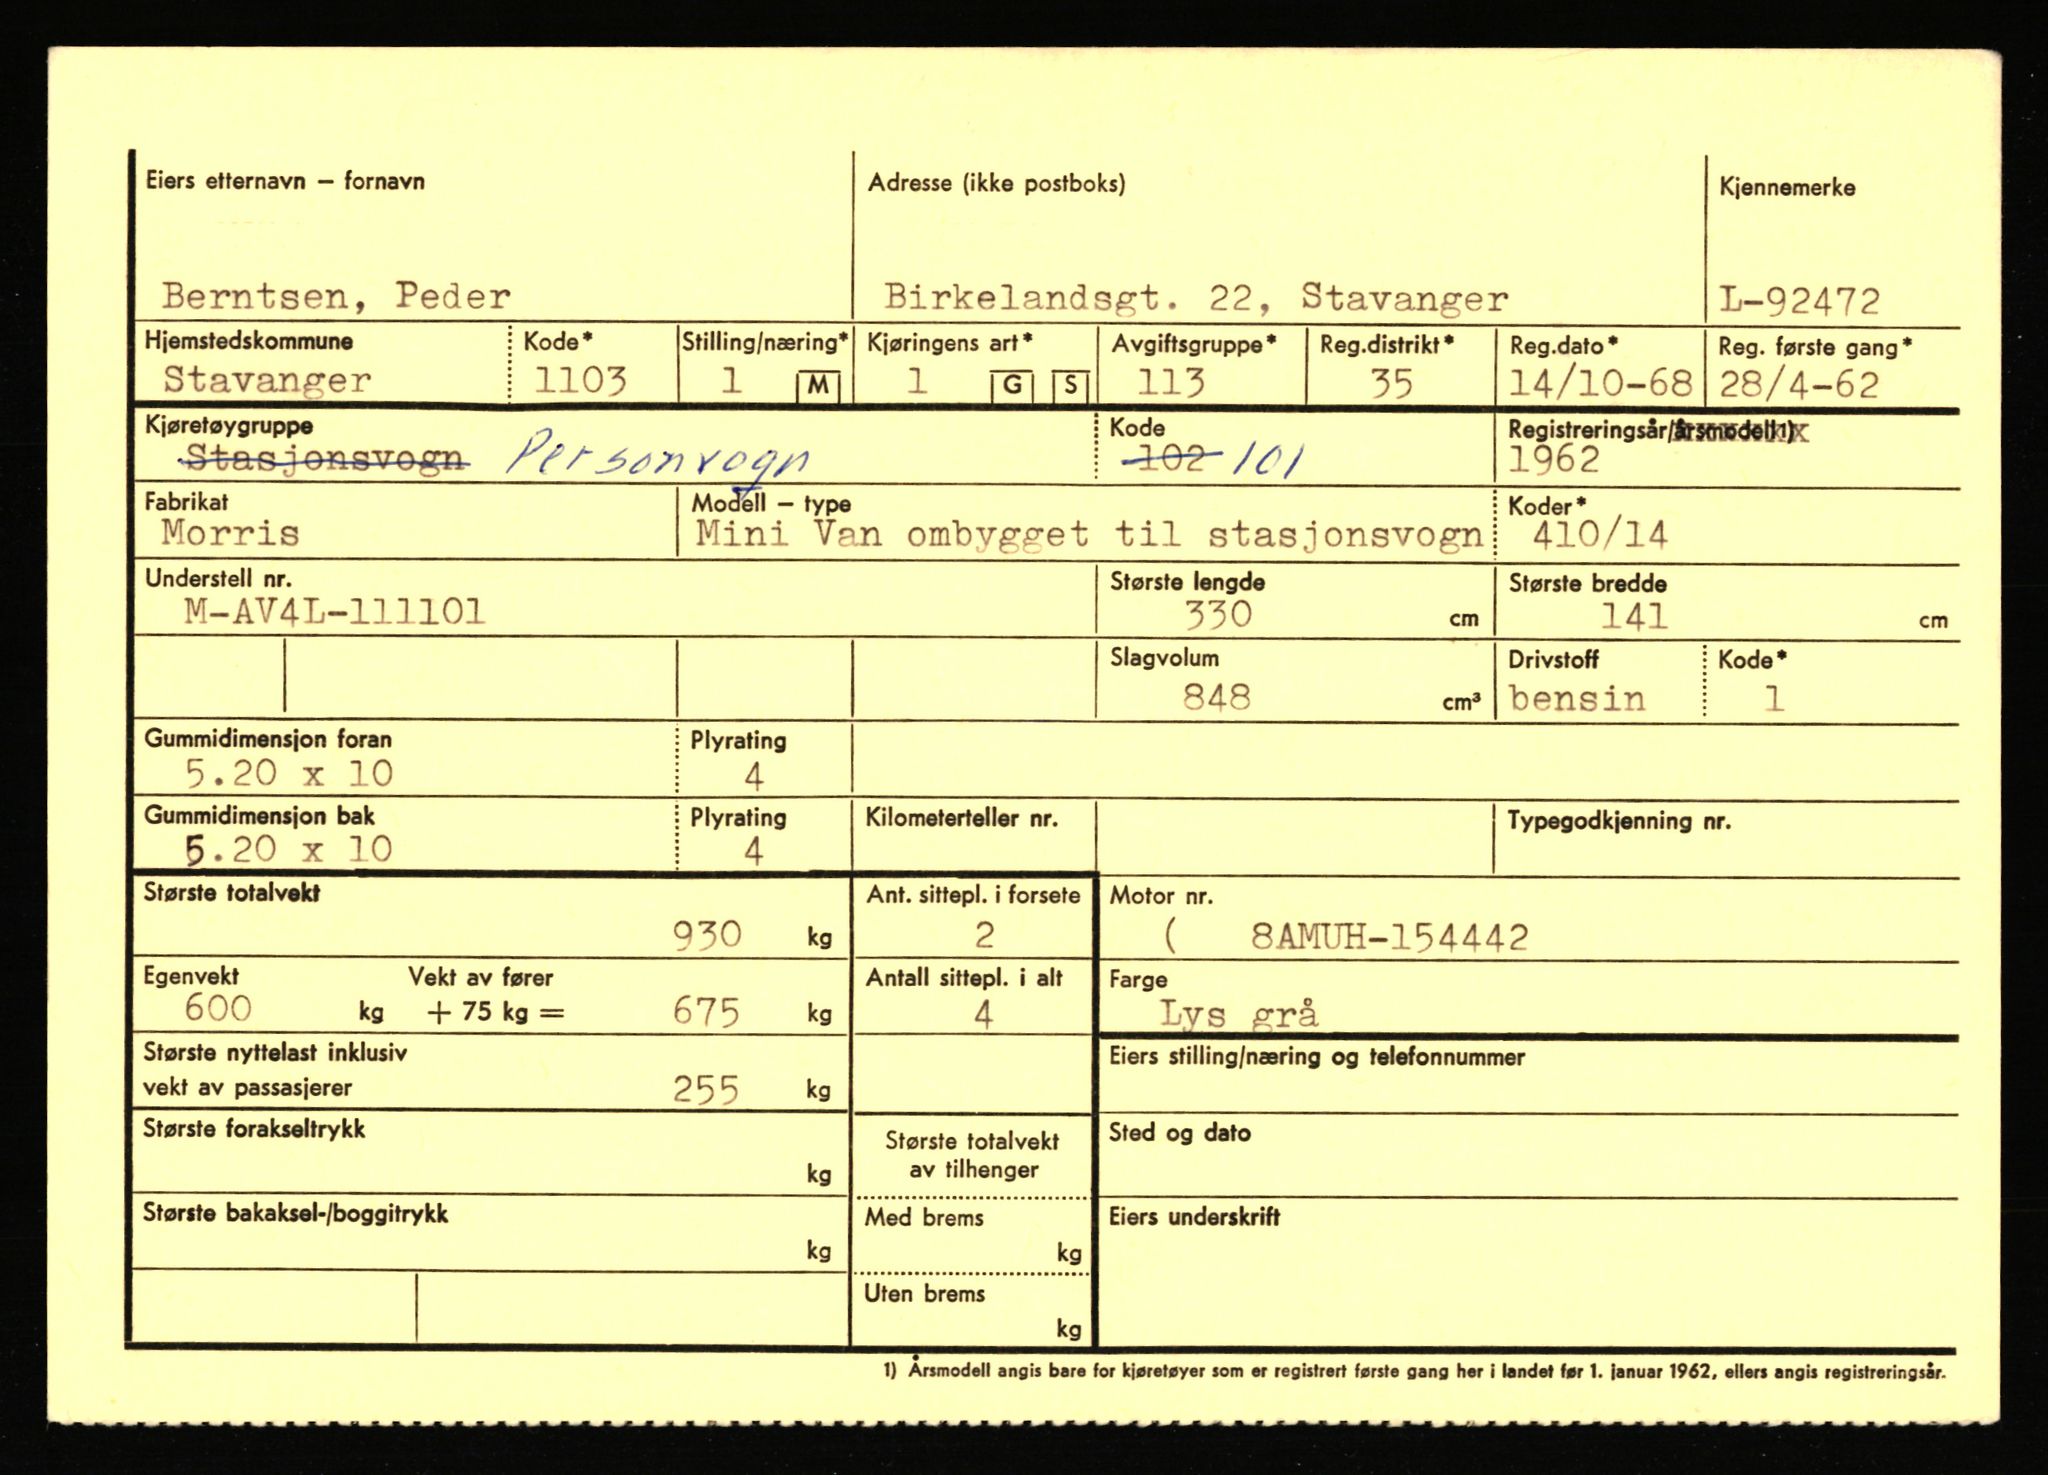 Eiers etternavn – fornavn Adresse (ikke postboks) Kjennemerke
Berntsen, Peder Birkelandsgt. 22, Stavanger L-92472
Hjemstedskommune Kode* Stilling/næring* Kjøringens art* Avgiftsgruppe* Reg.distrikt* Reg.dato* Reg. første gang*
Stavanger 1103 1 M 1 G S 113 35 14/10-68 28/4-62
Kjøretøygruppe Kode Registreringsår/årsmodell 1)
Stasjonsvogn Personvogn 102 101 1962
Fabrikat Modell – type Koder*
Morris Mini Van ombygget til stasjonsvogn 410/14
Understell nr. Største lengde Største bredde
M-AV4L-111101 330 cm 141 cm
Slagvolum Drivstoff Kode*
848 cm³ bensin 1
Gummidimensjon foran Plyrating
5.20 x 10 4
Gummidimensjon bak Plyrating Kilometerteller nr. Typegodkjenning nr.
5.20 x 10 4
Største totalvekt Ant. sittepl. i forsete Motor nr.
930 kg 2 ( 8AMUH-154442
Egenvekt Vekt av fører Antall sittepl. i alt Farge
600 kg + 75 kg = 675 kg 4 Lys grå
Største nyttelast inklusiv Eiers stilling/næring og telefonnummer
vekt av passasjerer 255 kg
Største forakseltrykk Største totalvekt Sted og dato
kg av tilhenger
Største bakaksel-/boggitrykk Med brems Eiers underskrift
kg kg
Uten brems
kg
1) Årsmodell angis bare for kjøretøyer som er registrert første gang her i landet før 1. januar 1962, ellers angis registreringsår.